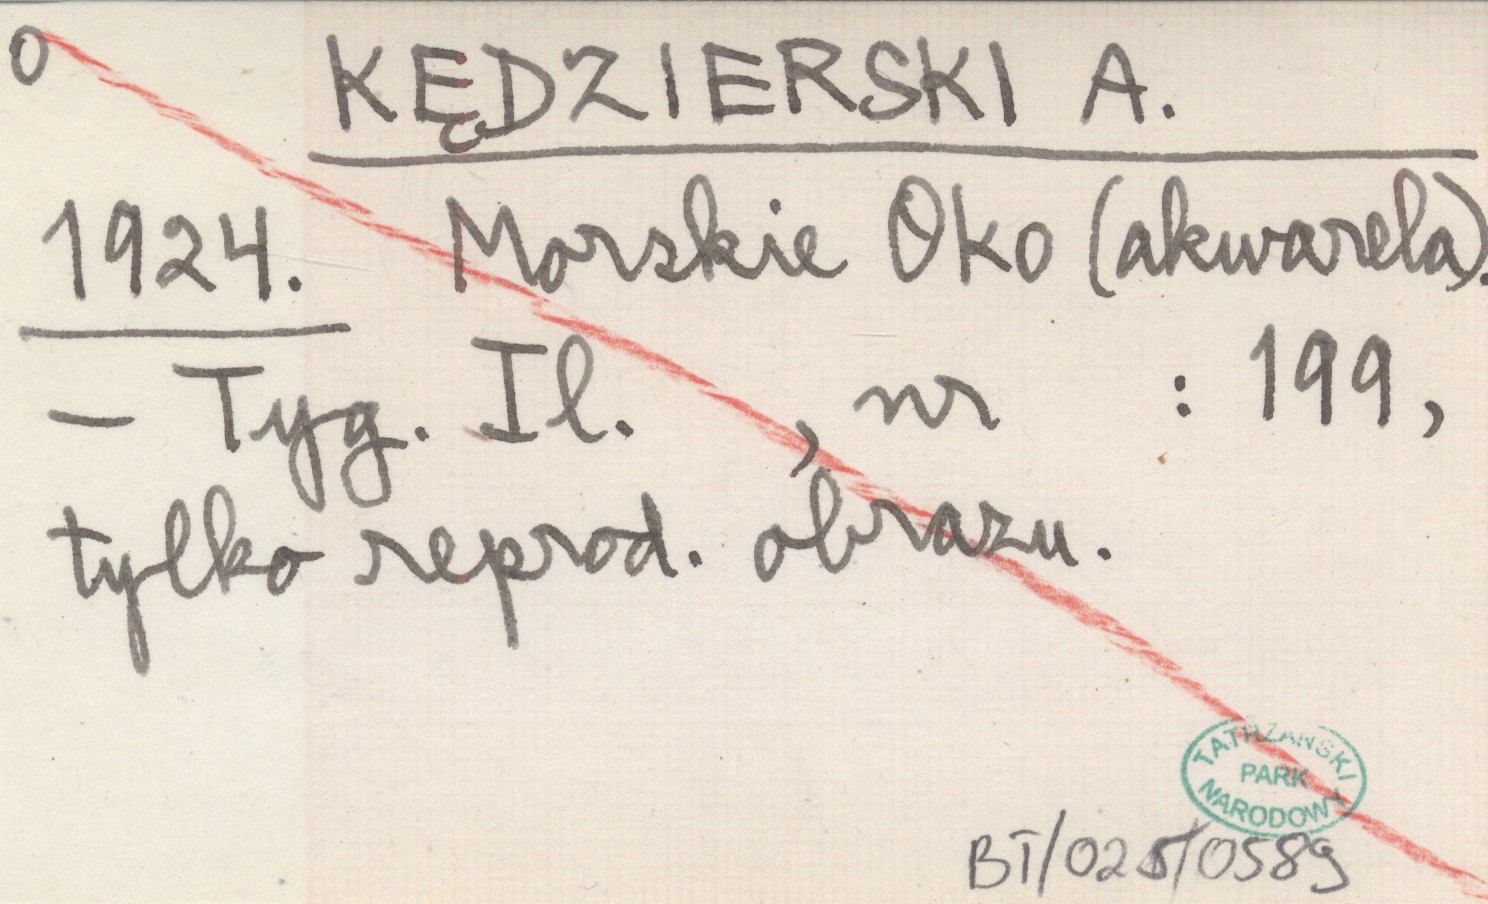 O KĘDZIERSKI A.
1924. Morskie Oko (akwarela).
– Tyg. Il. , nr : 199,
tylko reprod. obrazu.
TATRZAŃSKI
PARK
NARODOWY
BT/025/0589